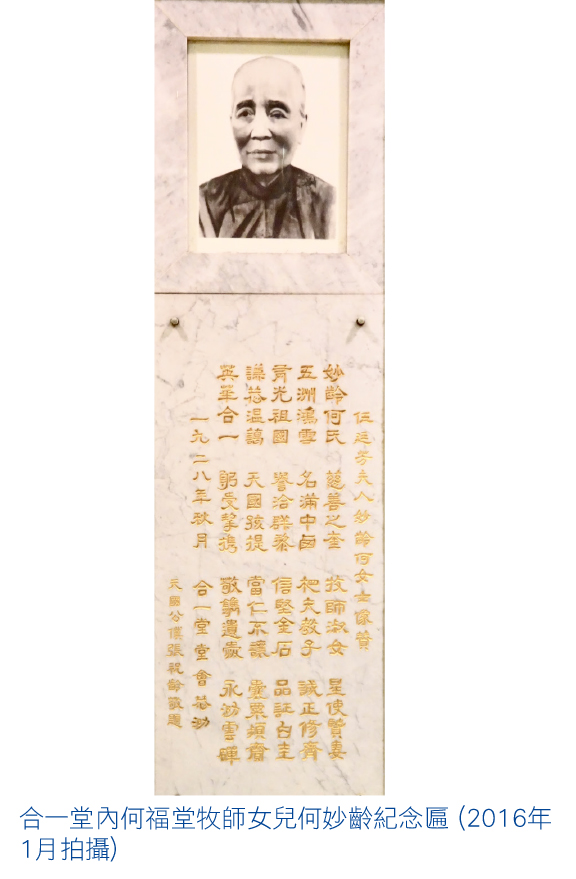 伍廷芳夫人妙齡何女士像贊
妙齡何氏 慈善之奎 牧師淑女 星使賢妻
五洲鴻雪 名滿中西 相夫教子 誠正修齊
光祖國 譽洽群黎 信堅金石 品証白圭
謙恭温藹 天國孩提 當仁不讓 囊粟頻齎
英華合一 躬受挈携 敬鐫遺 永泐雲
一九二八年秋月 合一堂堂會恭泐
天國公僕張祝齡敬題
合一堂內何福堂牧師女兒何妙齡紀念匾 (2016年
1月拍攝)